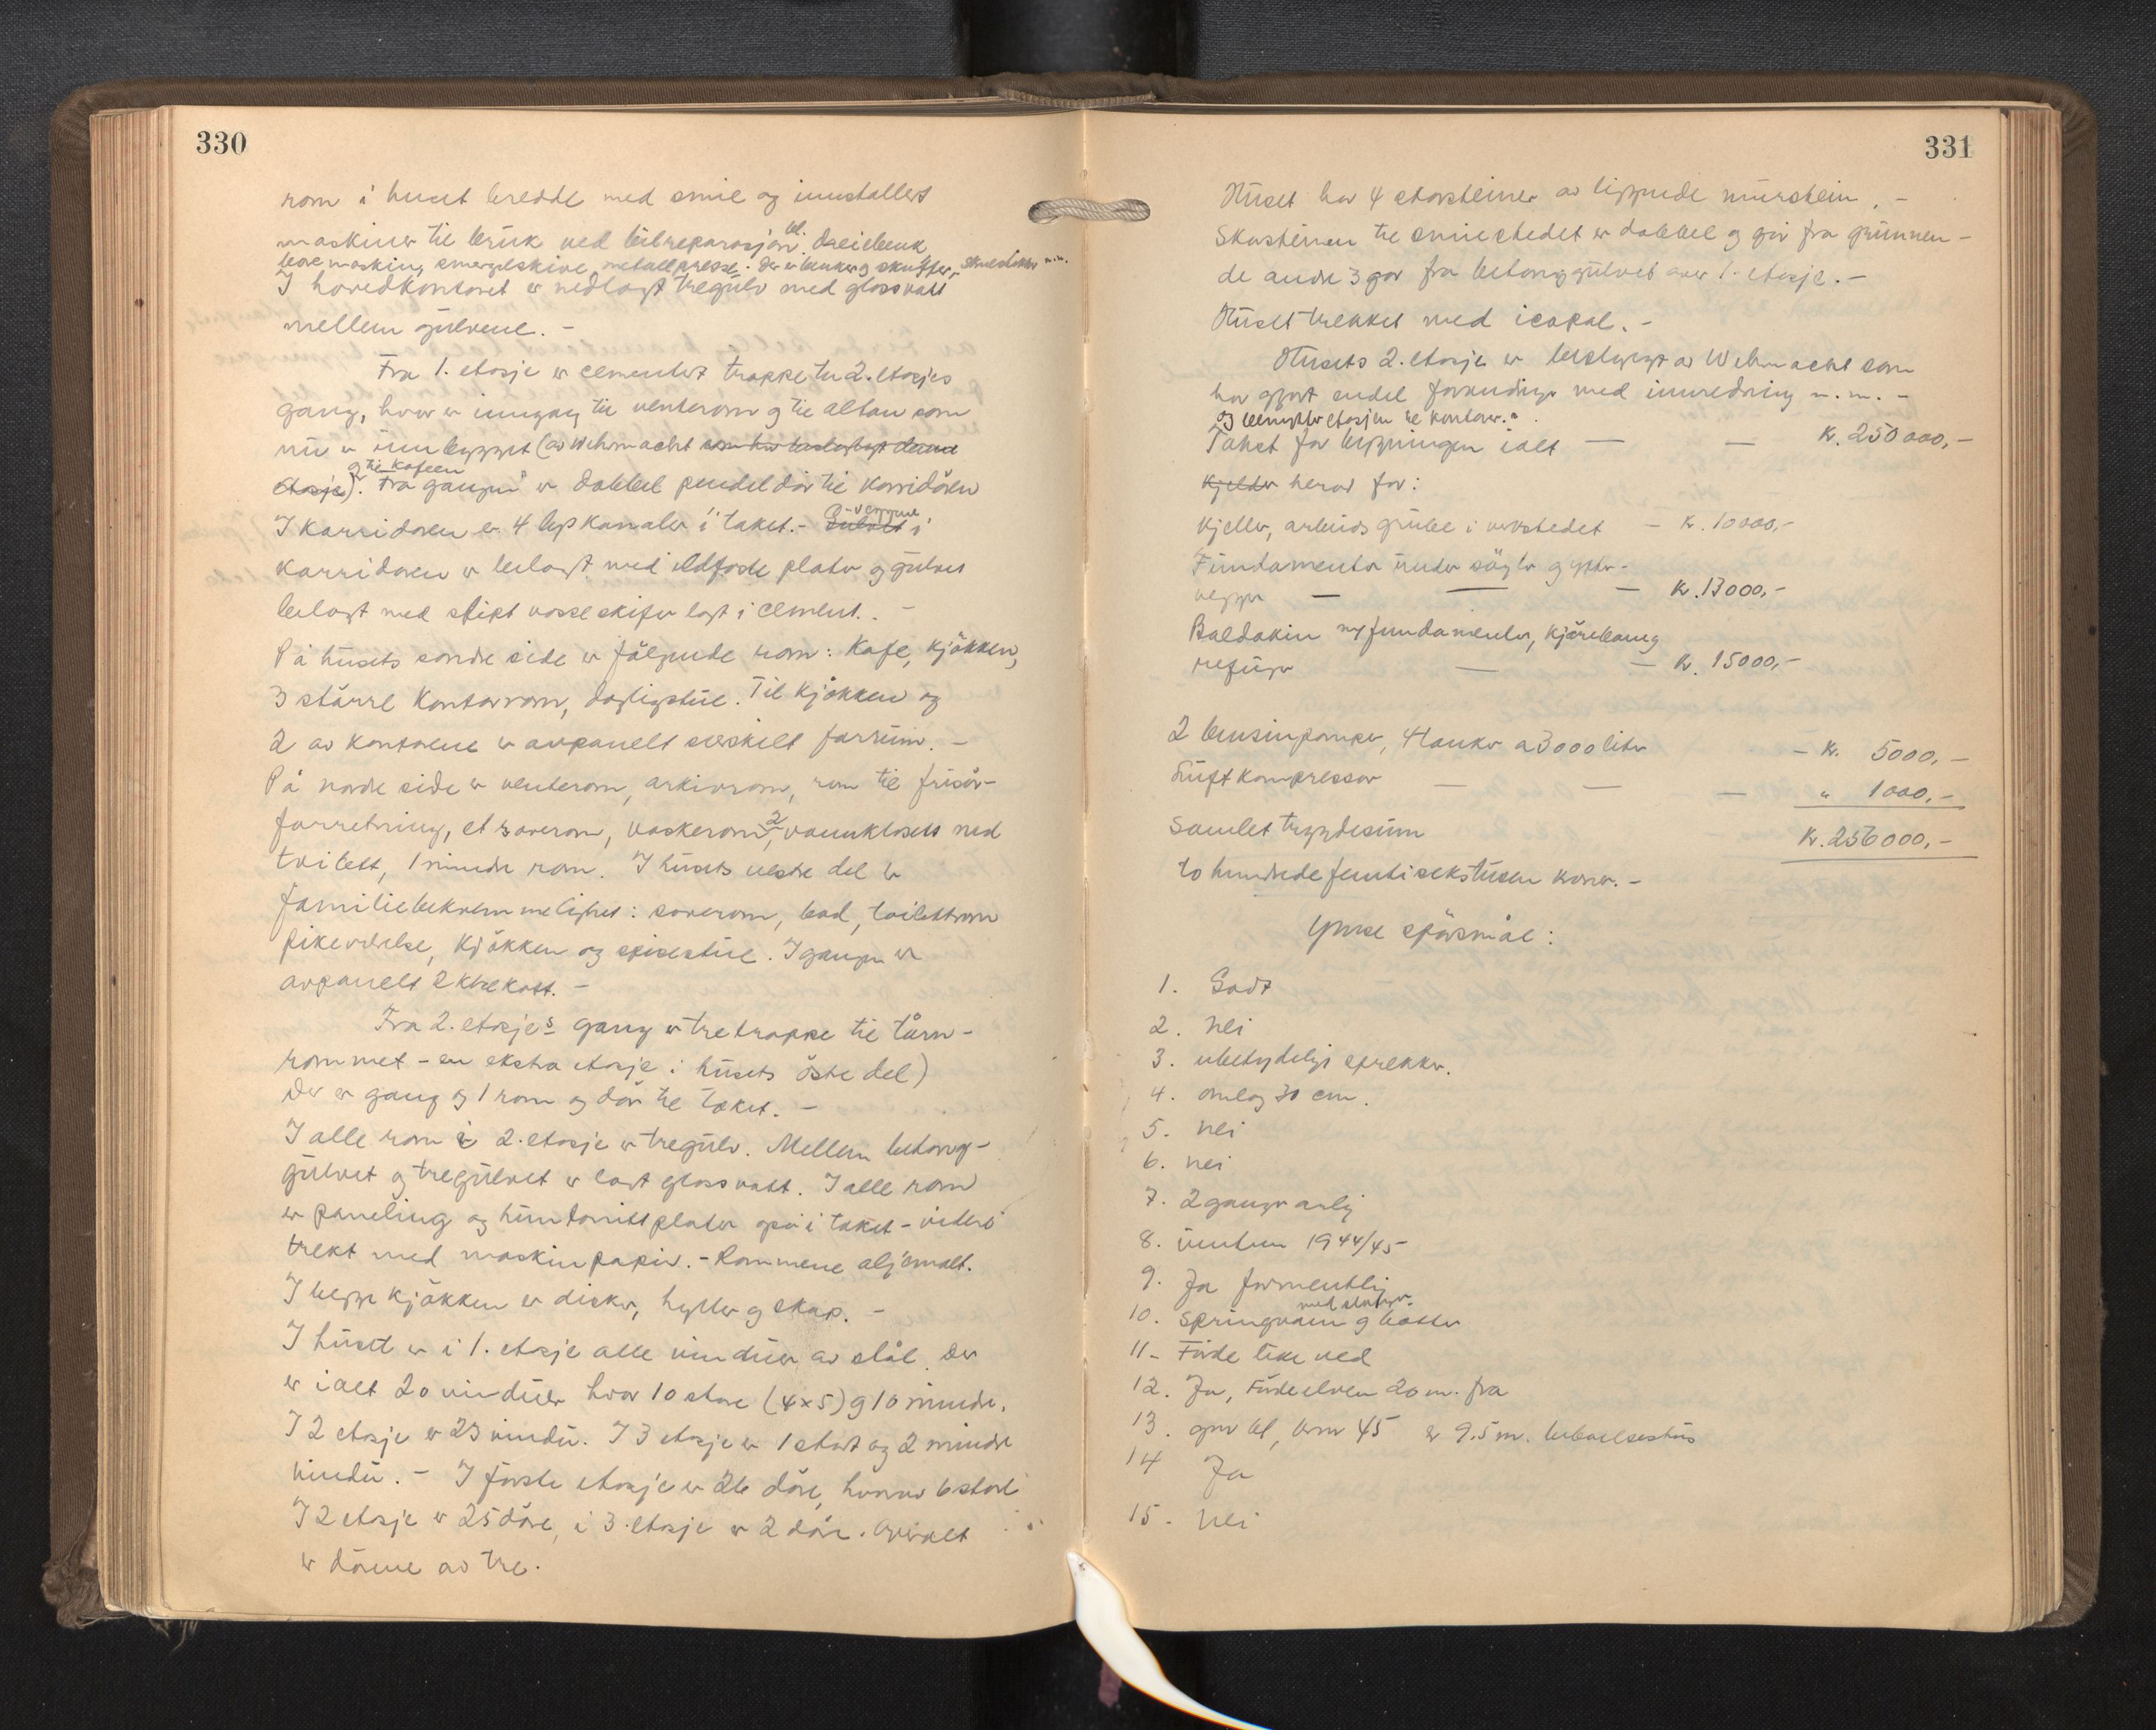 330
rom i huset bredde med smie og innstallert
maskiner til bruk ved bilreparasjon bl. dreiebenk
boremaskin, smergelskive, metallpresse. Der er benker og skuffer, m.m.
I hovedkontoret er nedlagt tregulv med glassvatt
mellem gulvene. -
Fra 1. etasje er cementert trappe til 2. etasjes
gang, hvor er inngang til venterom og til altan som
nu er innbygget (av Wehrmacht som har beslaglagt denne
etasje). og til kafeen Fra gangen er dobbel pendeldör til korridören
I korridoren er 4 lyskanaler i taket. - Gulvet i
korridoren er belagt med ildfaste plater og gulvet
belagt med slipt vosseskifer lagt i cement. -
På husets sondre side er fölgende rom: Kafe, kjökken,
3 större kontorrom, dagligstue. Til kjökken og
2 av kontorene er avpanelt særskilt forrum. -
På nordre side er venterom, arkivrom, rom til frisör-
forretning, et soverom, vaskerom, 2 vannklosett med
toilett, 1 mindre rom. I husets vestre del er
familiebekvemmelighet: soverom, bad, toilettrom
pikeværelse, kjökken og spisestue. I gangen er
avpanelt 2 klekott. -
Fra 2. etasjes gang er tretrappe til tårn-
rommet - en ekstra etasje i husets östre del)
Der er gang og 1 rom og dör til taket. -
I alle rom i 2. etasje er tregulv. Mellem betong-
gulvet og tregulvet er lagt glassvatt. I alle rom
er paneling og hundonittplater også i taket - videre
trekt med maskinpapir. - Rommene oljemalt.
I begge kjökken er disker, hyller og skap. -
I huset er i 1. etasje alle vinduer av stål. Der
er ialt 20 vinduer hvor 10 store (4x5) og 10 mindre.
I 2 etasje er 23 vindu. I 3 etasje er 1 stort og 2 mindre
vindu. - I förste etasje er 26 döre, hvorav 6 store
I 2 etasje er 25 döre, i 3. etasje er 2 döre. Overalt
er dörene av tre.
331
Huset har 4 skorsteiner av liggende murstein. -
Skorsteinen til smiestedet er dobbel og går fra grunnen -
de andre 3 går fra betonggulvet over 1. etasje. -
Huset trekket med icopal. -
Husets 2. etasje er beslaglagt av Wehrmacht som
har gjort endel forandringer med innredning m. m. -
og benytter etasjen til kontorer.
Takst for bygningen ialt — — Kr. 250 000,-
Kjelder herav for:
Kjeller, arbeidsgrube i verkstedet - Kr. 10000,-
Fundamenter under söyler og ytter-
vegger — — — Kr. 13000,-
Baldakin m/fundamenter, kjörebaneg
refuger — — Kr. 15000,-
2 bensinpumper, 4 tanker a 3000 liter - Kr. 5000,-
Luftkompressor — — — " 1000,-
Samlet trygdesum Kr. 256000,-
to hundrede femti sekstusen kroner. -
Ymse spörsmål:
1. Godt
2. Nei
3. ubetydelige sprekker.
4. omlag 30 cm.
5. Nei
6. Nei
7. 2 ganger årlig
8. vinteren 1944/45
9. Ja formentlig
10. Springvann med slanger og bötter
11- Förde like ved
12. Ja, Fördeelven 20 m. fra
13. gnr 21, brnr 45 er 9.5 m. beboelseshus
14 Ja
15. Nei